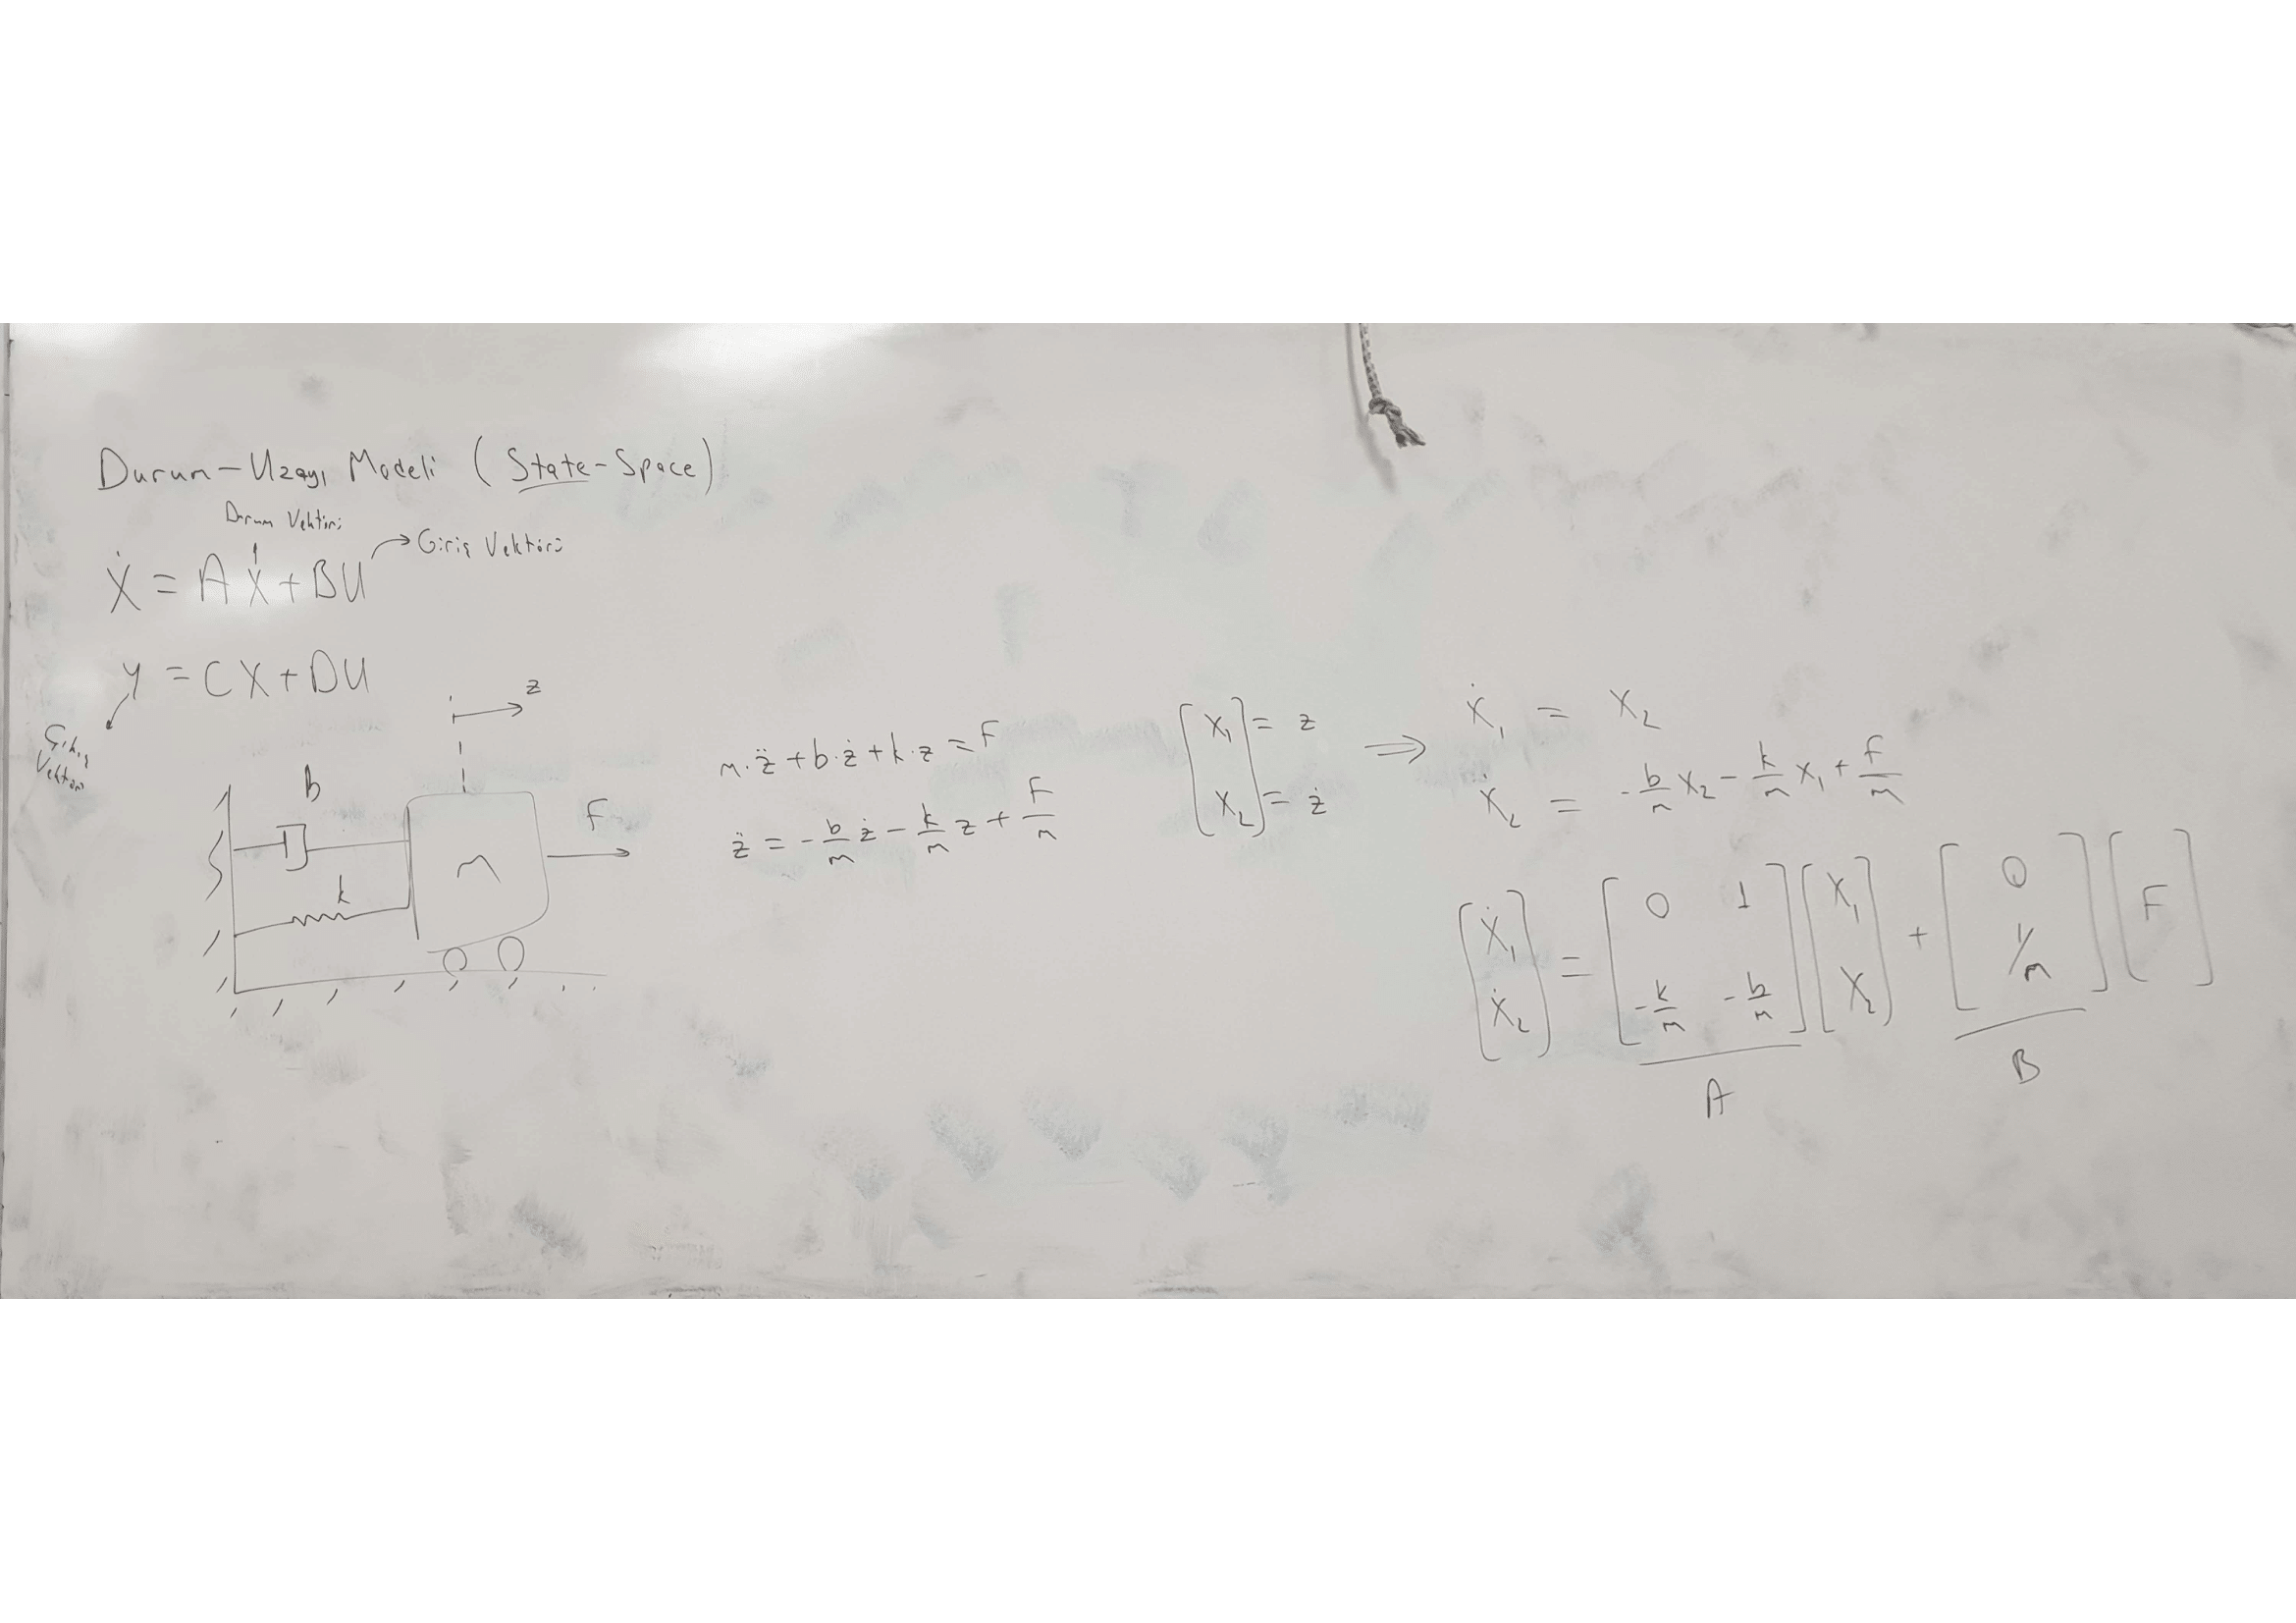 Durum-Uzayı Modeli (State-Space)
Durum Vektörü
Ẋ = AX + BU → Giriş Vektörü
y = CX + DU
Çıkış Vektörü
z
b
k
m
F
m·z̈ + b·ż + k·z = F
z̈ = -b/m ż - k/m z + F/m
[X₁] = z
[X₂] = ż
⇒
Ẋ₁ = X₂
Ẋ₂ = -b/m X₂ - k/m X₁ + F/m
[Ẋ₁; Ẋ₂] = [0 1; -k/m -b/m] [X₁; X₂] + [0; 1/m] [F]
A
B